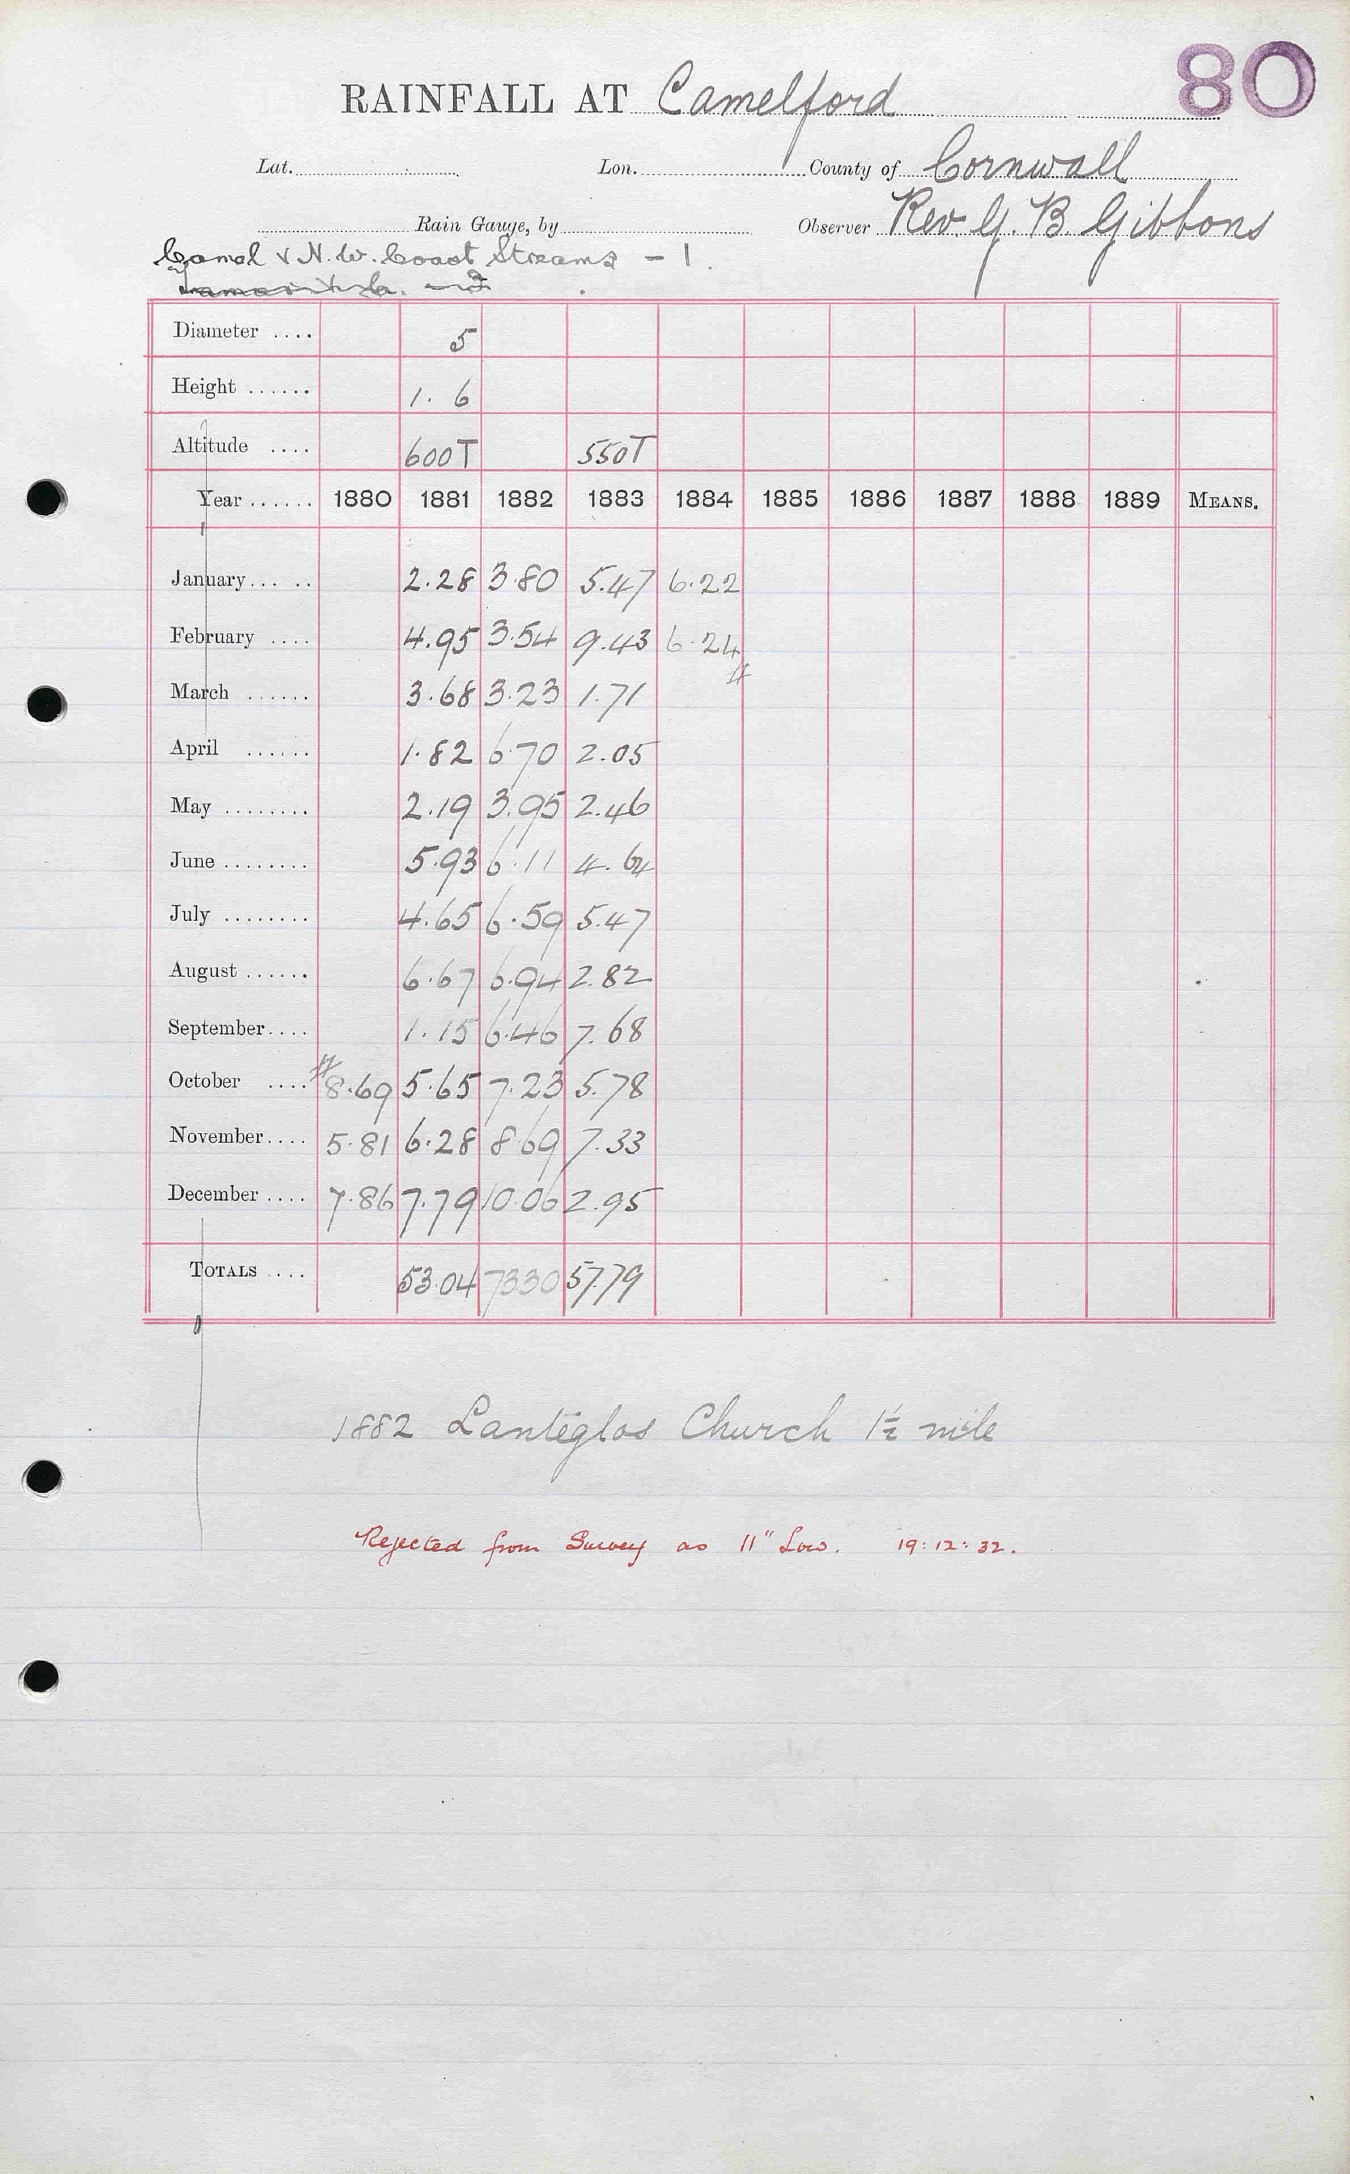 80
RAINFALL AT Camelford
Lat. Lon. County of Cornwall
Rain Gauge, by Observer Rev G. B. Gibbons
Camel & N.W. Coast Streams - 1.
Diameter .... 5
Height ...... 1. 6
Altitude .... 600T 550T
Year ...... 1880 1881 1882 1883 1884 1885 1886 1887 1888 1889 MEANS.
January ... .. 2.28 3.80 5.47 6.22
February .... 4.95 3.54 9.43 6.24
March ...... 3.68 3.23 1.71
April ...... 1.82 6.70 2.05
May ........ 2.19 3.95 2.46
June ........ 5.93 6.11 4.64
July ........ 4.65 6.59 5.47
August ...... 6.67 6.94 2.82
September .... 1.15 6.46 7.68
October .... 8.69 5.65 7.23 5.78
November .... 5.81 6.28 8.69 7.33
December .... 7.86 7.79 10.06 2.95
TOTALS .... 53.04 7330 57.79
1882 Lanteglos Church 1½ mile
Rejected from Survey as 11" Low. 19:12:32.